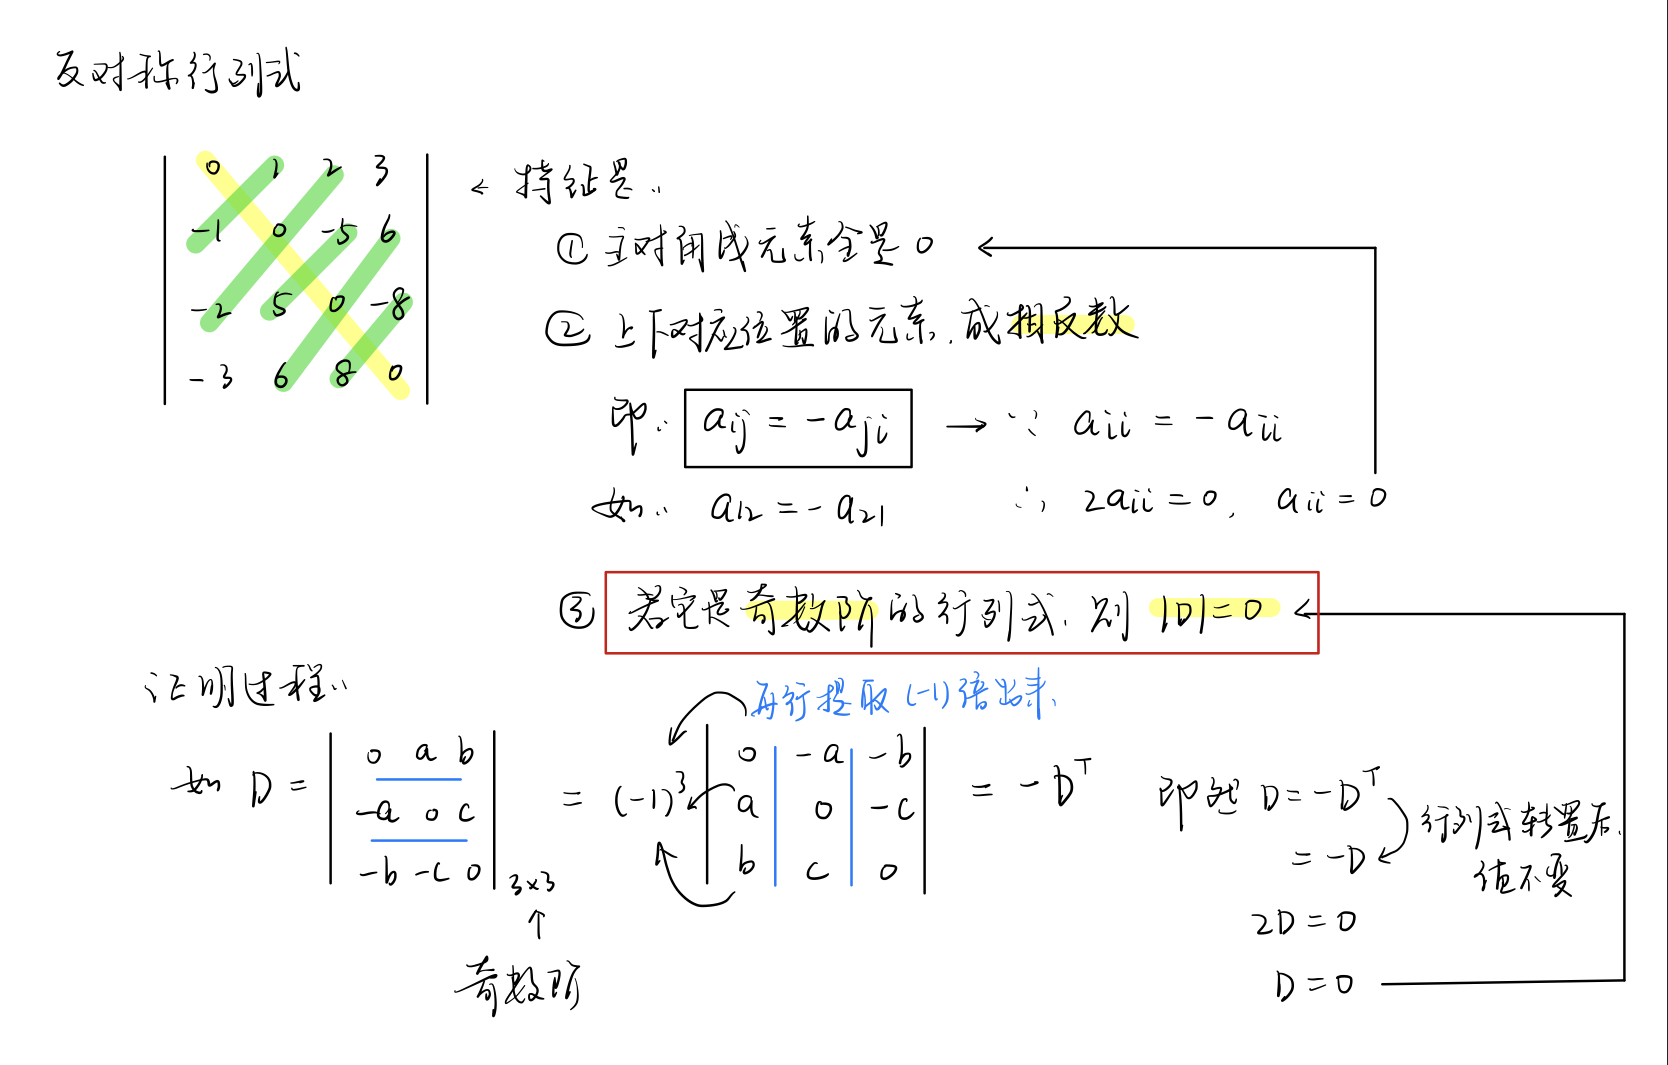 反对称行列式
0 1 2 3
-1 0 -5 6
-2 5 0 -8
-3 6 8 0
← 特征是:
① 主对角线元素全是 0
② 上下对应位置的元素, 成相反数
即: aij = -aji → ∵ aii = -aii
如: a12 = -a21 ∴ 2aii = 0, aii = 0
③ 若它是奇数阶的行列式, 则 |D| = 0
证明过程:
再行提取 (-1) 倍出来.
如 D = | 0 a b | = (-1)³ | 0 -a -b | = -Dᵀ
| -a 0 c | | a 0 -c |
| -b -c 0 | 3×3 | b c 0 |
↑
奇数阶
即然 D = -Dᵀ
= -D
行列式转置后,
值不变
2D = 0
D = 0